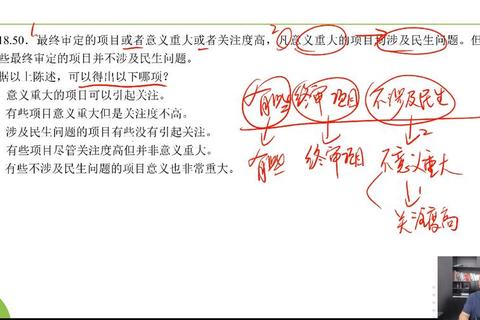 18.50.最终审定的项目或者意义重大或者关注度高，凡意义重大的项目均涉及民生问题。但
些最终审定的项目并不涉及民生问题。
据以上陈述，可以得出以下哪项？
意义重大的项目可以引起关注。
有些项目意义重大但是关注度不高。
涉及民生问题的项目有些没有引起关注。
有些项目尽管关注度高但并非意义重大。
有些不涉及民生问题的项目意义也非常重大。
有些 终审项目 不涉及民生
2
有些 终审项目 不意义重大
关注度高